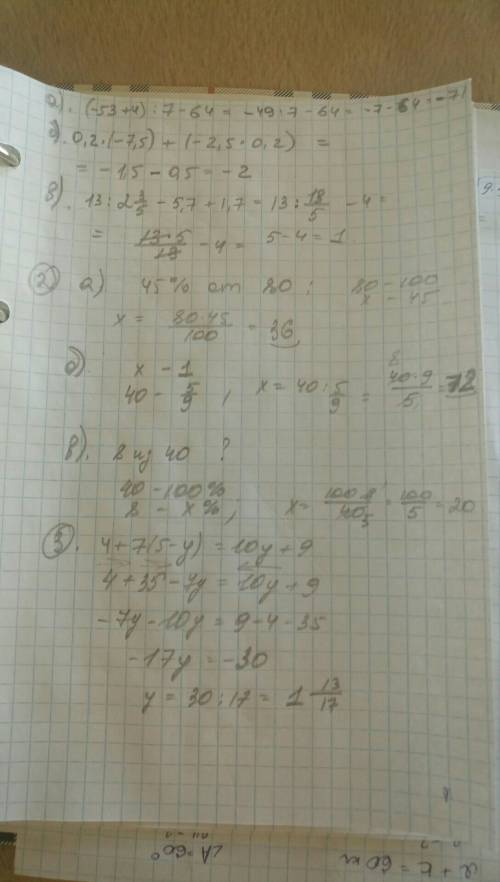 а). (-53+4) : 7 - 64 = -49 : 7 - 64 = -7 - 64 = -71
б). 0,2·(-7,5) + (-2,5·0,2) =
= -1,5 - 0,5 = -2
в). 13 : 2 3/5 - 5,7 + 1,7 = 13 : 13/5 - 4 =
= 13·5/13 - 4 = 5 - 4 = 1
② а) 45% от 80 : 80 - 100
x - 45
x = 80·45/100 = 36
б) x - 1
40 - 5/9 , x = 40 : 5/9 = 40·9/5 = 72
8
в). 8 из 40 ?
40 - 100%
8 - x% ; x = 100·8/40 5 = 100/5 = 20
③. 4+7(5-y) = 10y+9
4+35-7y = 10y+9
-7y-10y = 9-4-35
-17y = -30
y = 30 : 17 = 1 13/17
∠A=60°